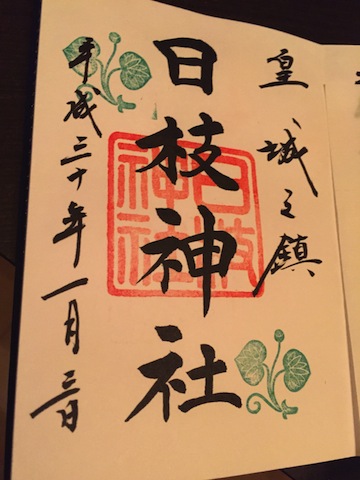 皇城之鎮
日枝神社
日枝神社
平成三十年一月三日